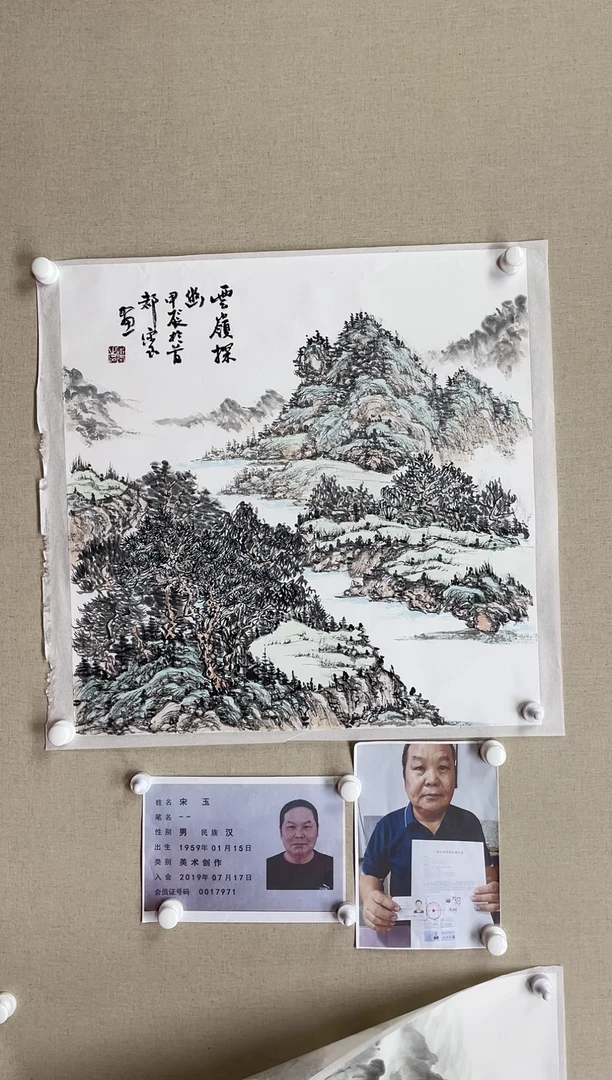 雲嶺探
幽
甲辰於首
都宋玉
画
姓名 宋 玉
笔名 --
性别 男 民族 汉
出生 1959年01月15日
类别 美术创作
入会 2019年07月17日
会员证号码 0017971